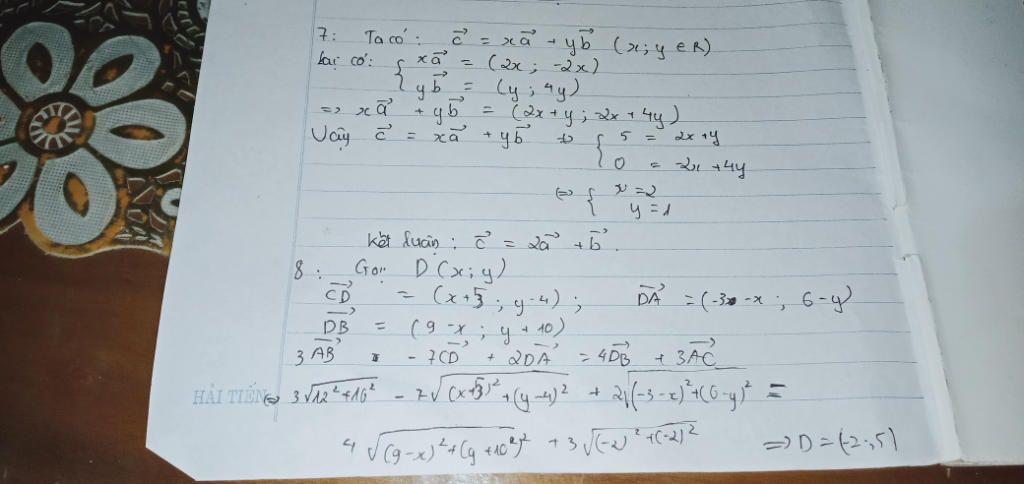 7: Ta có: c⃗ = xa⃗ + yb⃗ (x; y ∈ R)
Lại có: { xa⃗ = (2x; -2x)
yb⃗ = (y; 4y)
=> xa⃗ + yb⃗ = (2x+y; -2x+4y)
Vậy c⃗ = xa⃗ + yb⃗ => { 5 = 2x+y
0 = -2x+4y
<=> { x=2
y=1
Kết luận: c⃗ = 2a⃗ + b⃗.
8: Gọi D(x;y)
CD⃗ = (x+5; y-4); DA⃗ = (-3-x; 6-y)
DB⃗ = (9-x; y+10)
3AB⃗ - 7CD⃗ + 2DA⃗ = 4DB⃗ + 3AC⃗
HẢI TIẾN <=> 3√(12²+16²) - 7√((x+5)²+(y-4)²) + 2√((-3-x)²+(6-y)²) =
4√((9-x)²+(y+10)²) + 3√((-2)²+(-2)²) => D = (-2;5)